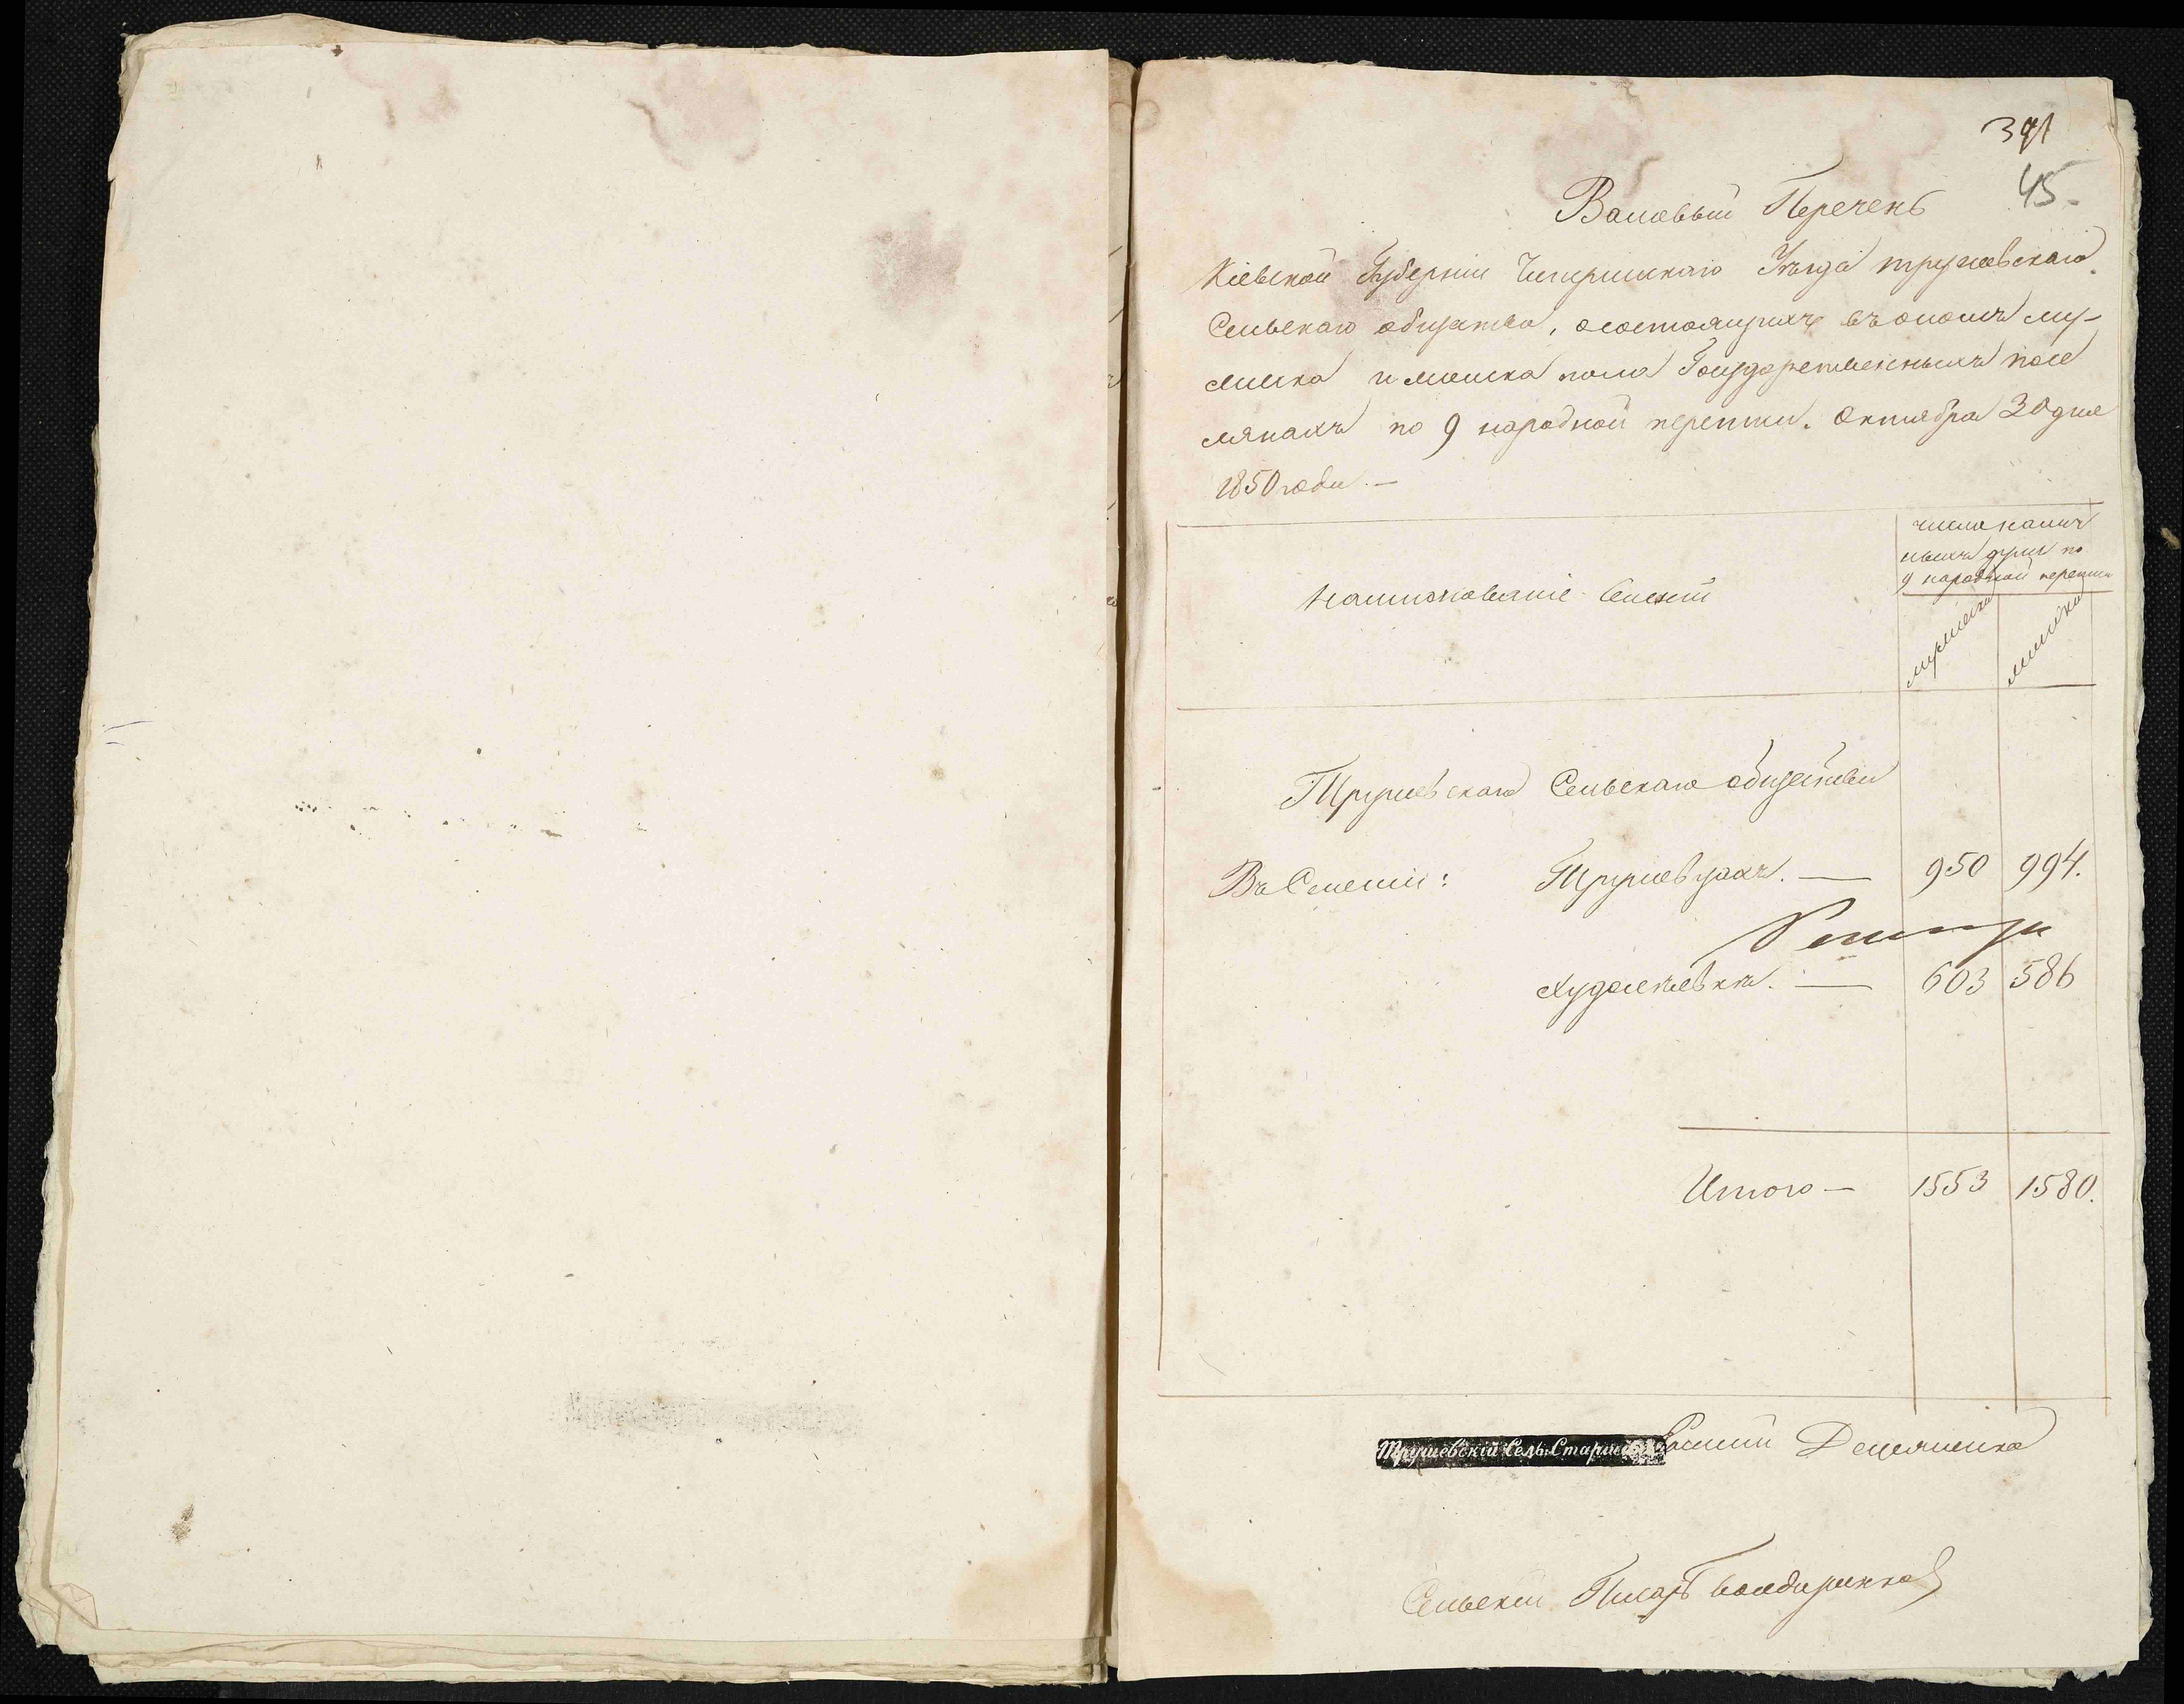 391
45.
Валовый Перечень
Кіевской Губерніи Чигиринскаго Уѣзда трушевскаго
Сельскаго общества, о состоящихъ въ ономъ му-
жеска и женска пола Государственныхъ посе
лянахъ по 9 народной переписи. Октября 30 дня
1850 года. —
Наименованіе Селеній
число налич
ныхъ душъ по
9 народной переписи
мужеска
женска
Трушевскаго Сельскаго общества
Въ Селеніи: Трушевцахъ. — 950 994.
Худолеевкѣ. — 603 586
Итого — 1553 1580.
Трушевскій Сель. Старшина
Сельскій Писарь